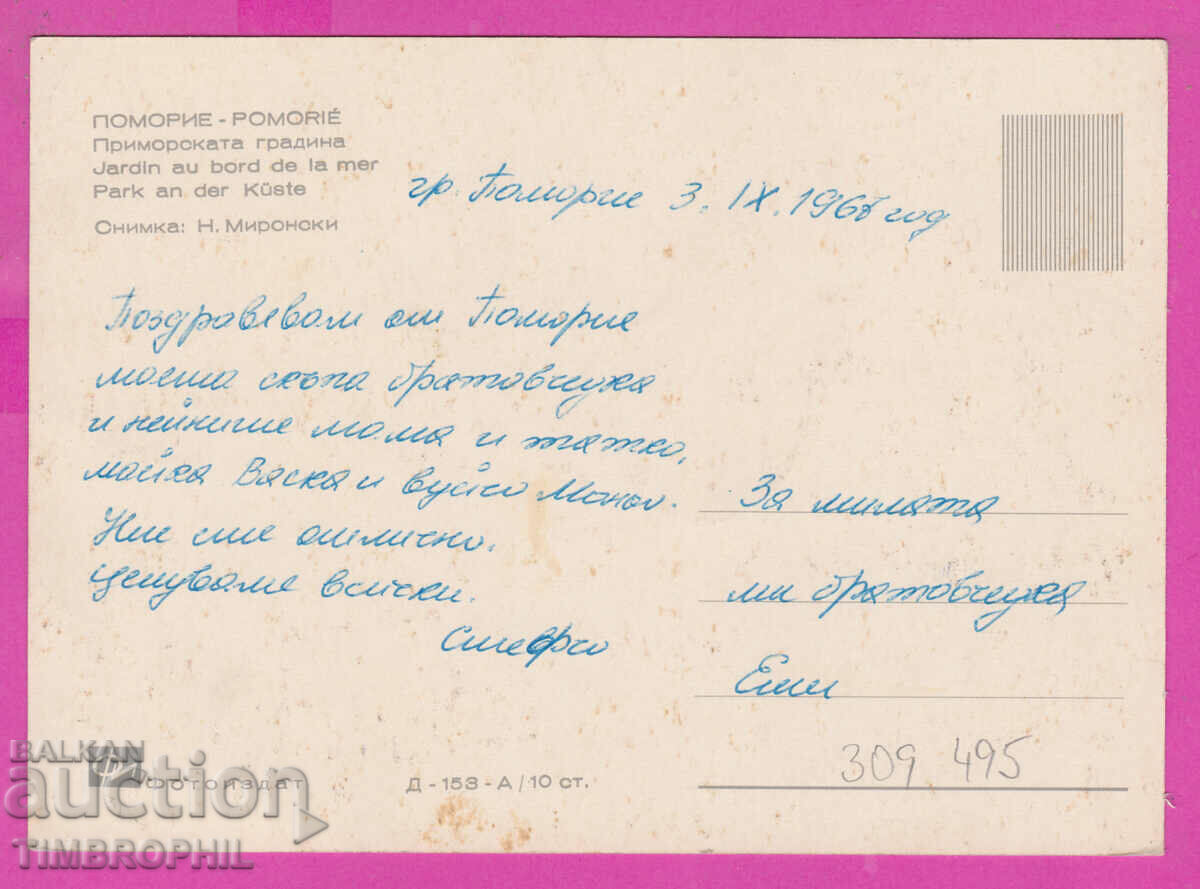 ПОМОРИЕ - POMORIÉ
Приморската градина
Jardin au bord de la mer
Park an der Küste
Снимка: Н. Миронски
гр. Поморие 3. IX. 1966 год
Поздравевам от Поморие
моета скъпа братовчедка
и нейните мама и татко,
майка Васка и вуйчо Маньо.
Ние сме отлично.
Целуваме всички.
Стефчо
За милата
ми братовчедка
Ели
309 495
Фотоиздат
Д - 153 - А / 10 ст.
BALKAN
auction
TIMBROPHIL